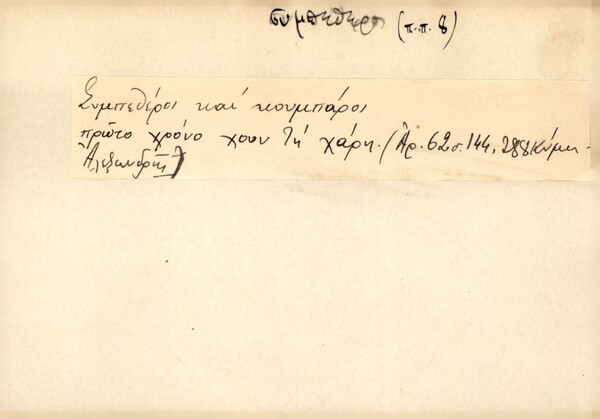 συμπεθερο (π.π. 8)
Συμπεθέροι καί κουμπάροι
πρῶτο χρόνο χουν τή χάρη. (Ἀρ. 62 σ. 144, 288 Κύμη -
Ἀλεξανδρῆς)